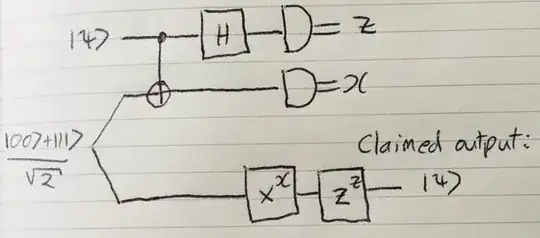 |ψ⟩ H = z
= x
|00⟩+|11⟩
√2
Claimed output:
X^x Z^z |ψ⟩